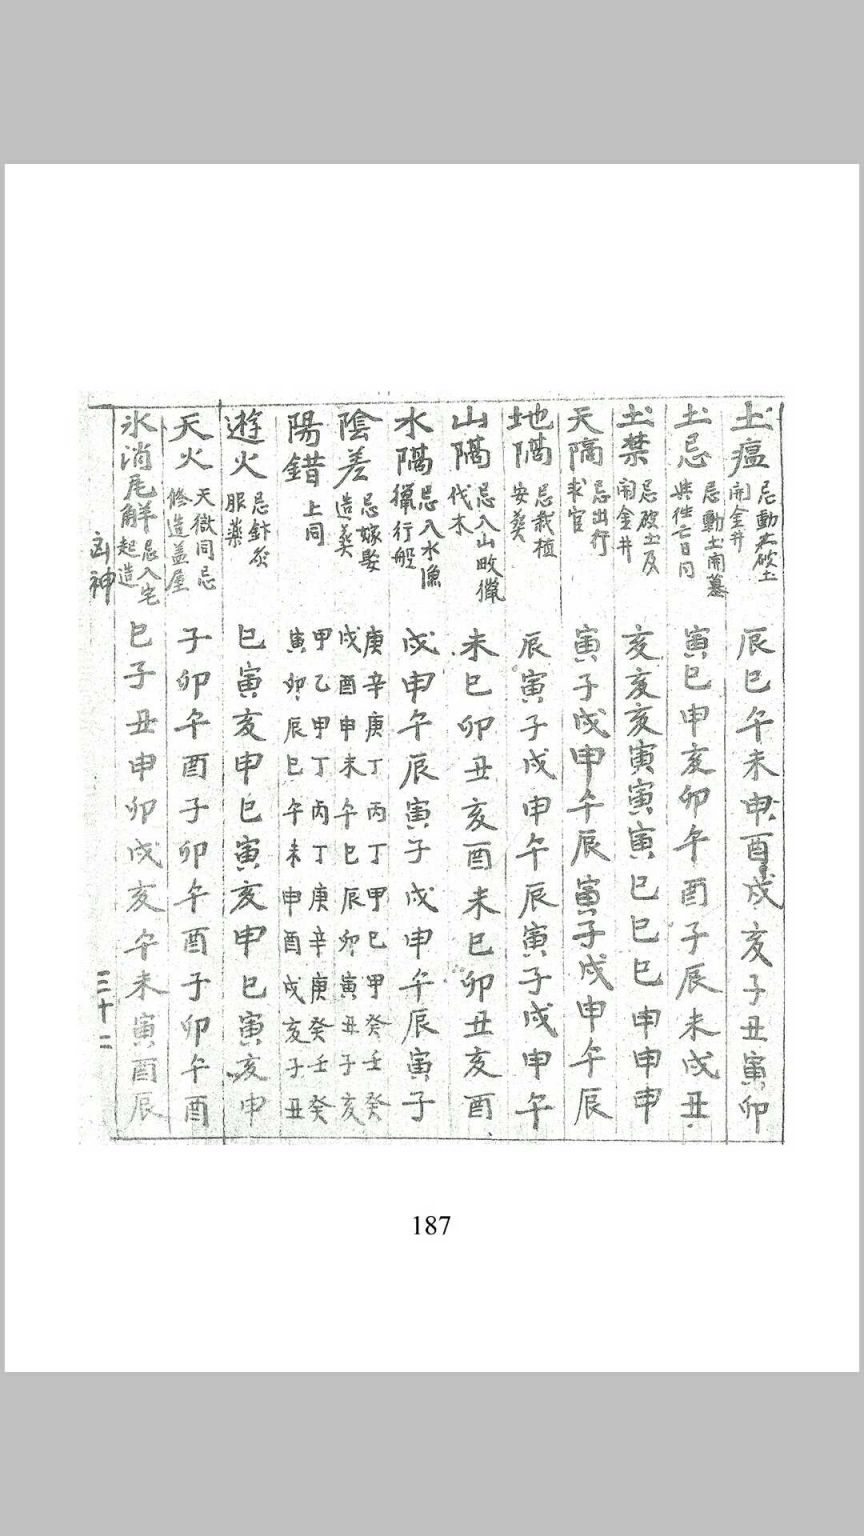 土瘟 忌動土破土開金井 辰巳午未申酉戌亥子丑寅卯
土忌 忌動土開墓與往亡日同 寅巳申亥卯午酉子辰未戌丑
土禁 忌破土及開金井 亥亥亥寅寅寅巳巳巳申申申
天隔 忌出行求官 寅子戌申午辰寅子戌申午辰
地隔 忌栽植安葬 辰寅子戌申午辰寅子戌申午
山隔 忌入山畋獵伐木 未巳卯丑亥酉未巳卯丑亥酉
水隔 忌入水漁獵行船 戌申午辰寅子戌申午辰寅子
陰差 忌嫁娶造葬 庚戌 辛酉 庚申 丁未 丙午 丁巳 甲辰 巳卯 甲寅 癸丑 壬子 癸亥
陽錯 上同 甲寅 乙卯 甲辰 丁巳 丙午 丁未 庚申 辛酉 庚戌 癸亥 壬子 癸丑
遊火 忌針灸服藥 巳寅亥申巳寅亥申巳寅亥申
天火 天獄同忌修造蓋屋 子卯午酉子卯午酉子卯午酉
氷消尾觧 忌入宅起造 巳子丑申卯戌亥午未寅酉辰
凶神 三十二
187